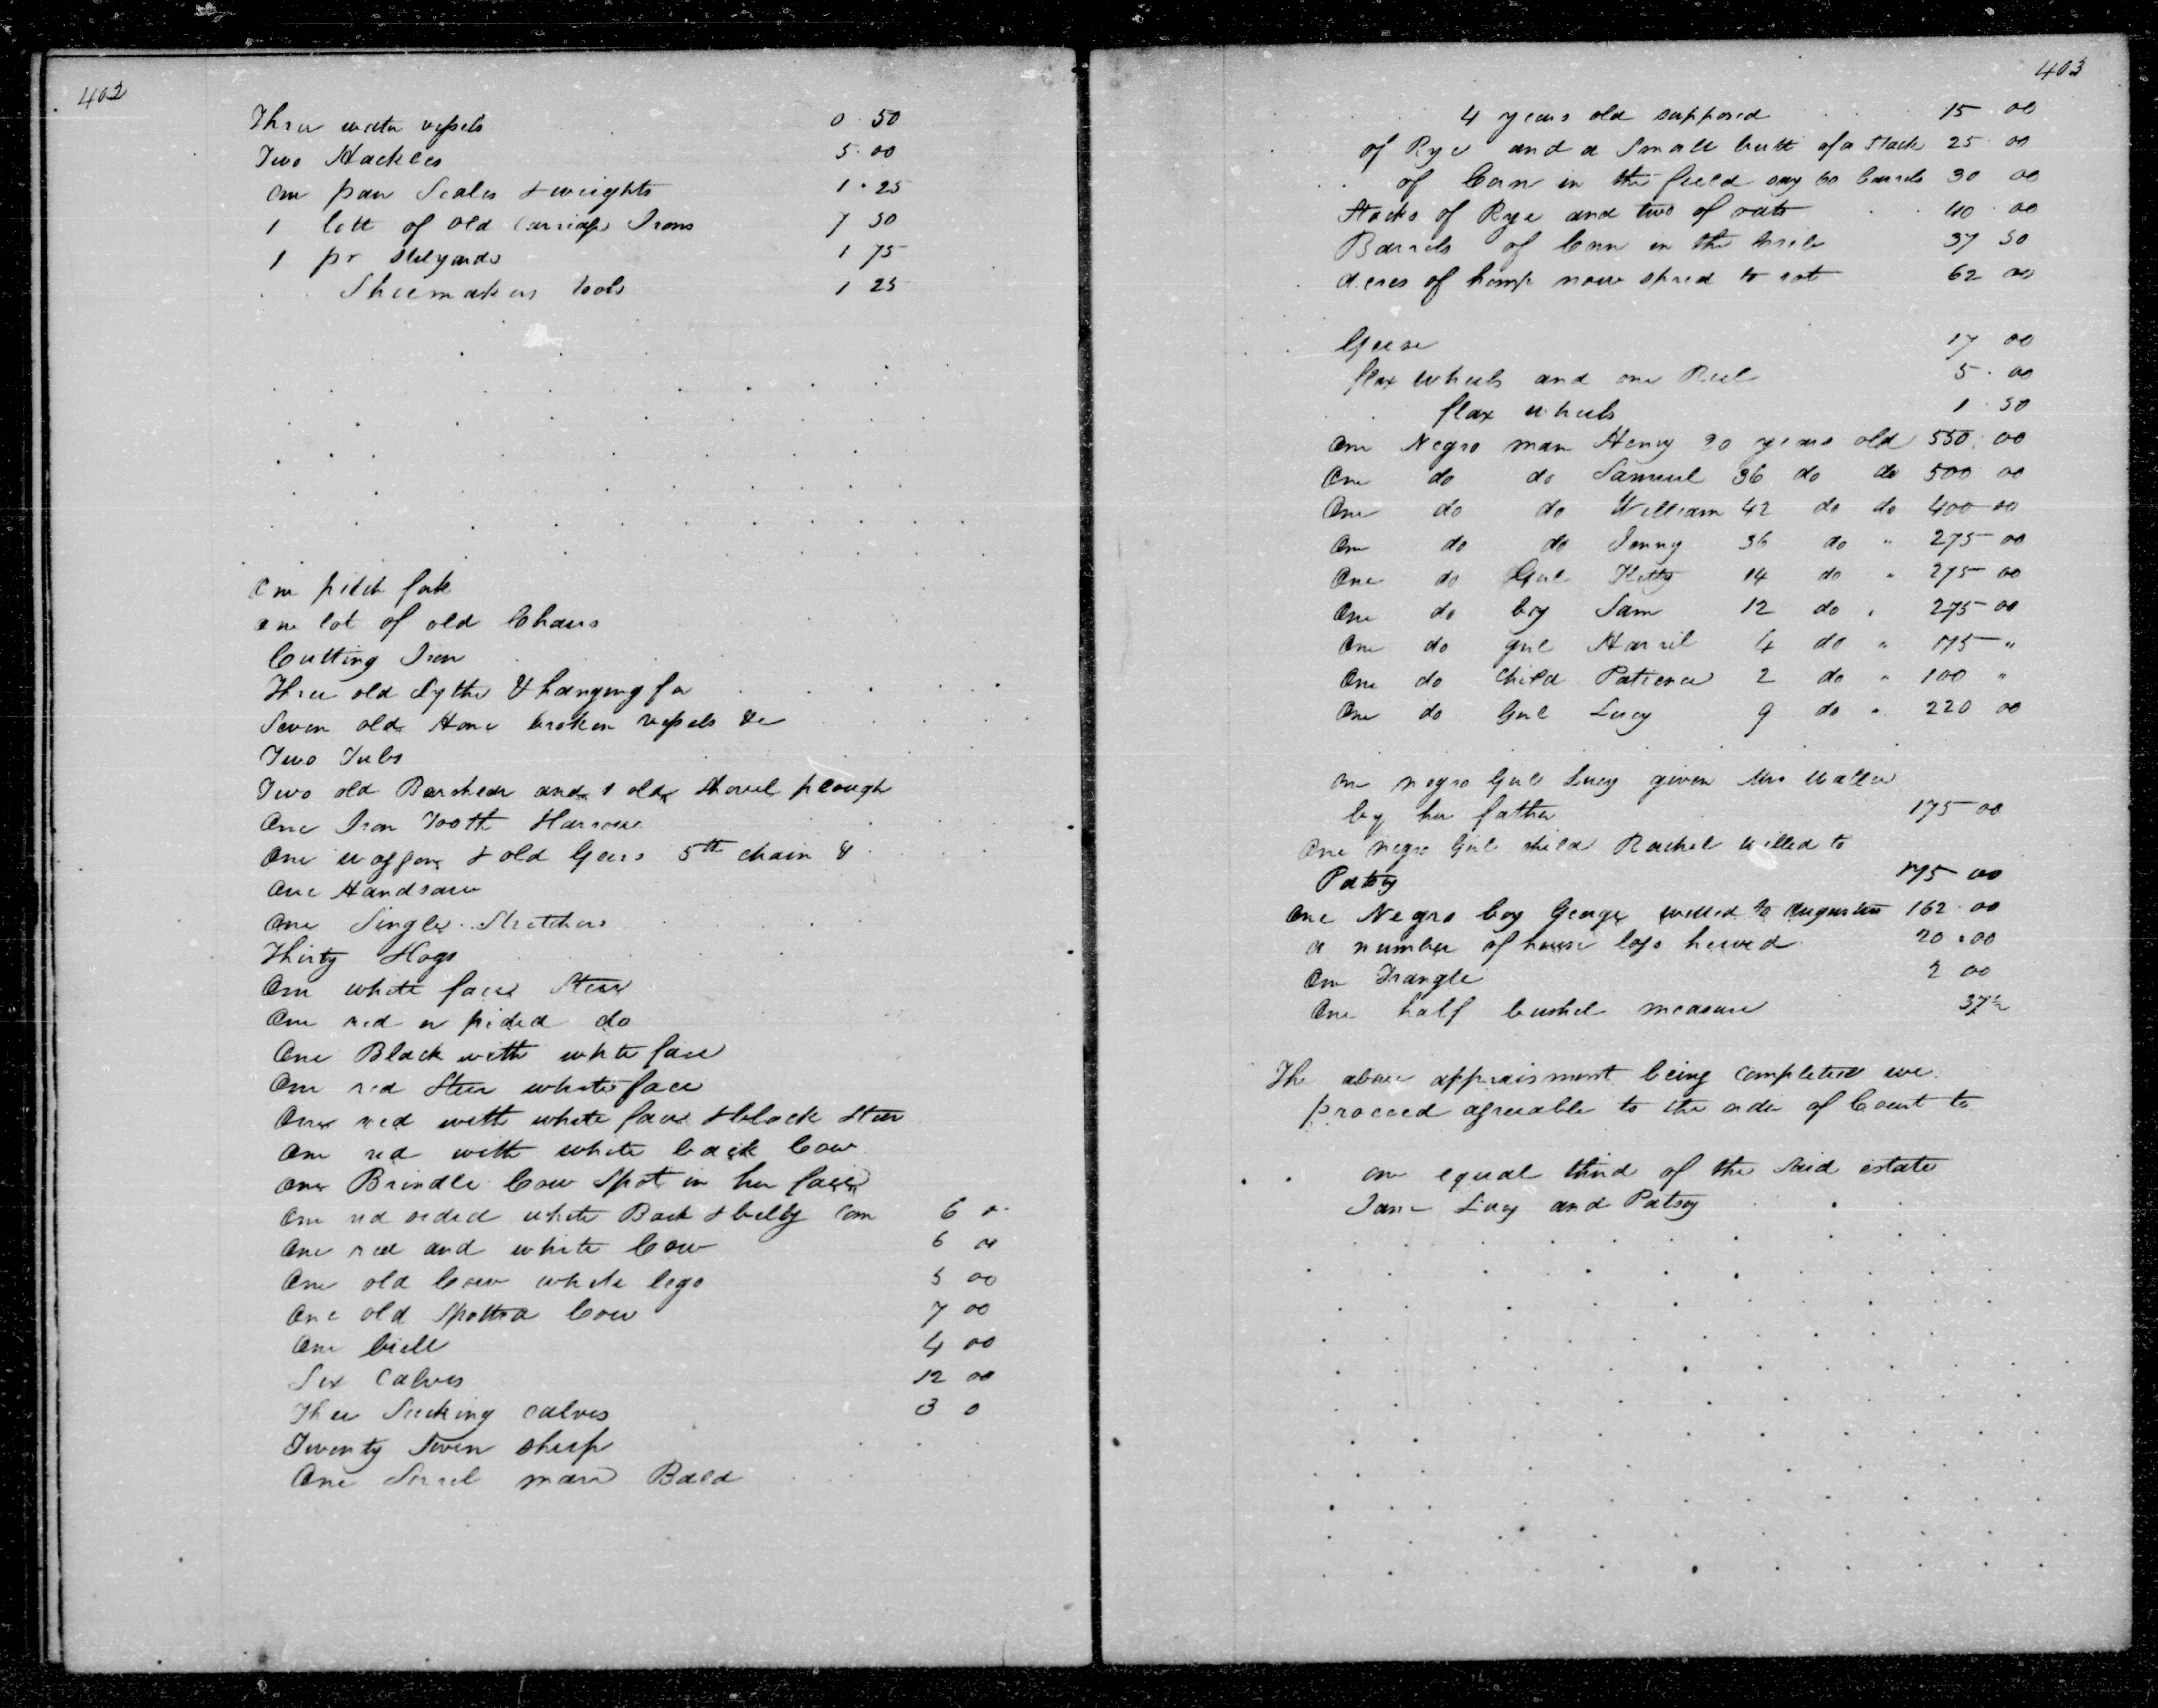 402
Three water vessels 0.50
Two Hackles 5.00
One pair Scales & weights 1.25
1 lott of old Carriage Irons 7 50
1 pr stilyards 1 75
Shoemakers tools 1 25
One pitch fork
one lot of old Chairs
Cutting Iron
Three old Sythe & hanging for
Seven old Stone broken vessels &c
Two Tubs
Two old Barshear and 1 old Shovel plough
One Iron Tooth Harrow
One waggon & old Gears 5th chain &
One Handsaw
One Single Stretchers
Thirty Hogs
One white faced Steer
One red or pided do
One Black with white face
One red Steer white face
One red with white face & black Steer
One red with white back Cow
One Brindle Cow Spot in her face
One red sided white Back & belly Cow 6 0
One red and white Cow 6 00
One old Cow white legs 5 00
One old Spotted Cow 7 00
One bull 4 00
Six Calves 12 00
Three Sucking calves 3 0
Twenty Seven sheep
One Sorrel mare Bald
403
4 years old supposed 15 00
of Rye and a Small butt of a Stack 25 00
of Corn in the field say 60 barrels 30 00
Stacks of Rye and two of oats 40 00
Barrels of Corn in the Crib 37 50
Acres of hemp now spred to rot 62 00
Geese 17 00
flax wheels and one Reel 5.00
flax wheels 1 50
One Negro man Henry 20 years old 550 00
One do do Samuel 36 do do 500 00
One do do William 42 do do 400 00
One do do Jenny 36 do " 275 00
One do Girl Kitty 14 do " 275 00
One do boy Sam 12 do " 275 00
One do girl Harril 4 do " 175 "
One do Child Patience 2 do " 100 "
One do Girl Lucy 9 do " 220 00
One negro Girl Lucy given Mrs Waller
by her father 175 00
One negro Girl child Rachel willed to
Patsy 175 00
One Negro boy George willed to Augustus 162.00
a number of house logs hewed 20.00
One Trangle 2 00
One half bushel measure 37½
The above appraisment being completed we
proceed agreeable to the order of Court to
one equal third of the said estate
Jane Lucy and Patsy